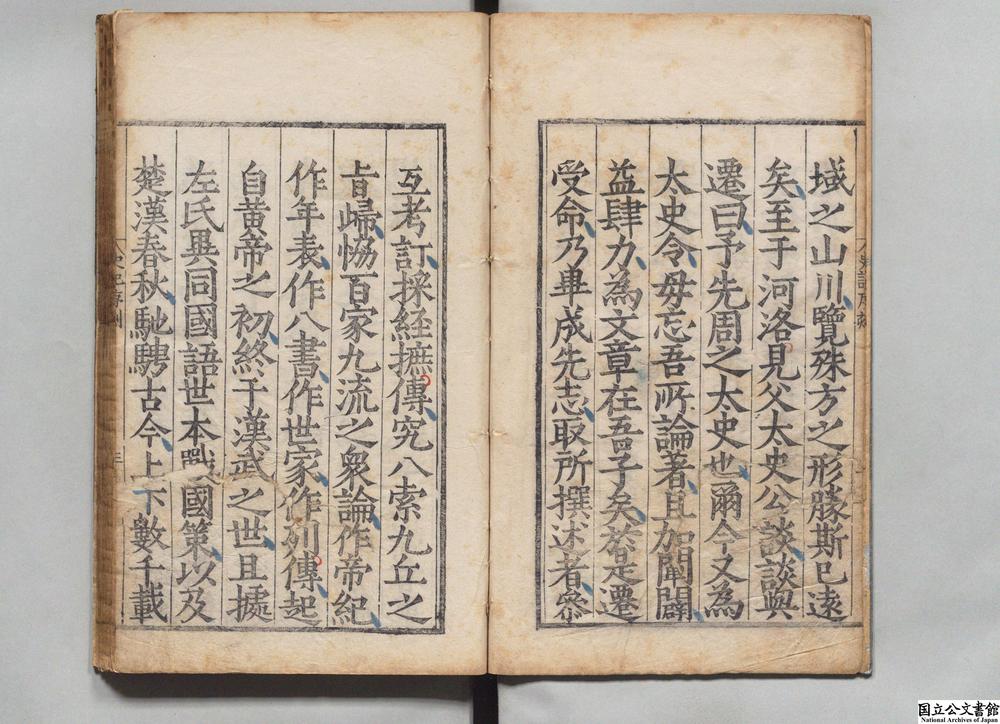 域之山川覽殊方之形勝斯已遠
矣至于河洛見父太史公談談與
遷曰予先周之太史也爾今又為
太史令毋忘吾所論著且加闡闢
益肆力為文章在吾子矣答是遷
受命乃畢成先志取所撰述者參
互考訂採經摭傳究八索九丘之
旨歸恊百家九流之衆論作帝紀
作年表作八書作世家作列傳起
自黄帝之初終于漢武之世且㨿
左氏異同國語世本戰國策以及
楚漢春秋馳騁古今上下數千載
国立公文書館
National Archives of Japan